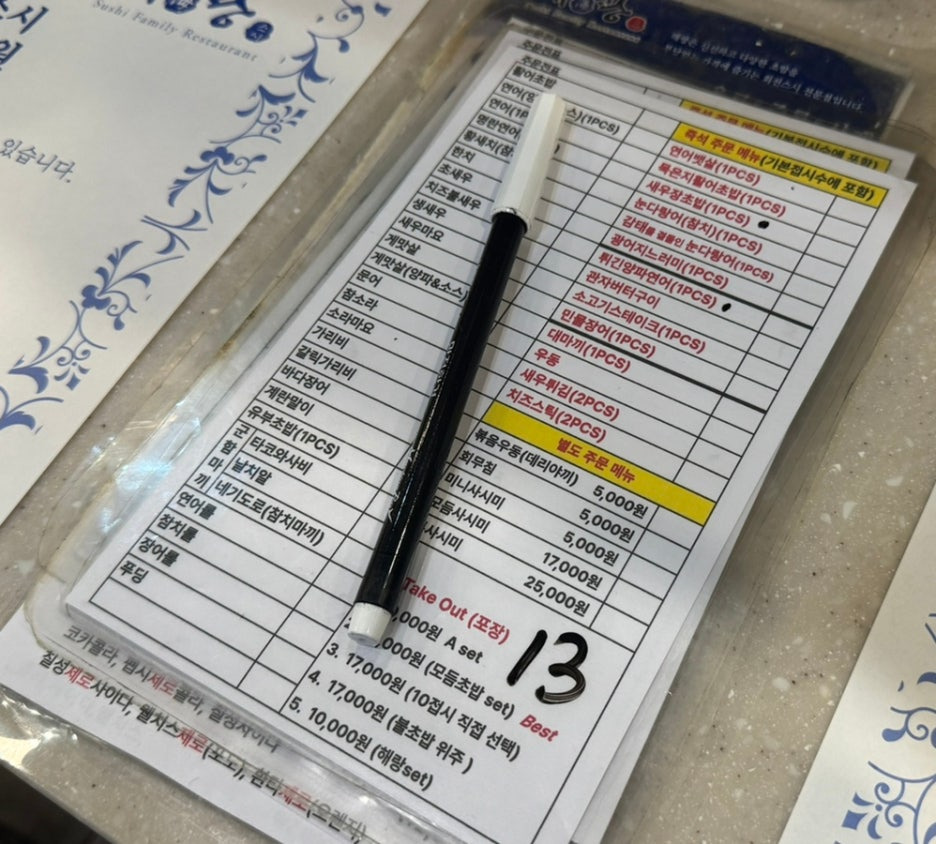 Sushi Family Restaurant
있습니다.
주문전표
주문전표
주문전표
활어초밥
연어
스)(1PCS)
연어(1P
명란연어
황새치(참
한치
초새우
치즈불새우
생새우
새우마요
게맛살
게맛살(양파&소스)
문어
참소라
소라마요
가리비
갈릭가리비
바다장어
계란말이
유부초밥(1PCS)
군 타코와사비
함 날치알
마 네기도로(참치마끼)
끼
연어롤
참치롤
장어롤
푸딩
즉석 주문 메뉴(기본접시수에 포함)
즉석 주문 메뉴(기본접시수에 포함)
연어뱃살(1PCS)
묵은지활어초밥(1PCS)
새우장초밥(1PCS)
눈다랑어(참치)(1PCS)
감태를 곁들인 눈다랑어(1PCS)
광어지느러미(1PCS)
튀긴양파연어(1PCS)
관자버터구이
소고기스테이크(1PCS)
민물장어(1PCS)
대마끼(1PCS)
우동
새우튀김(2PCS)
치즈스틱(2PCS)
별도 주문 메뉴
볶음우동(데리야끼) 5,000원
회무침 5,000원
미니사시미 5,000원
모듬사시미 17,000원
사시미 25,000원
Take Out (포장)
,000원 A set
,000원 (모듬초밥 set) Best
3. 17,000원 (10접시 직접 선택)
4. 17,000원 (불초밥 위주)
5. 10,000원 (해랑set)
13
코카콜라, 펩시제로콜라, 칠성사이다
칠성제로사이다, 웰치스제로(포도), 환타제로(오렌지)